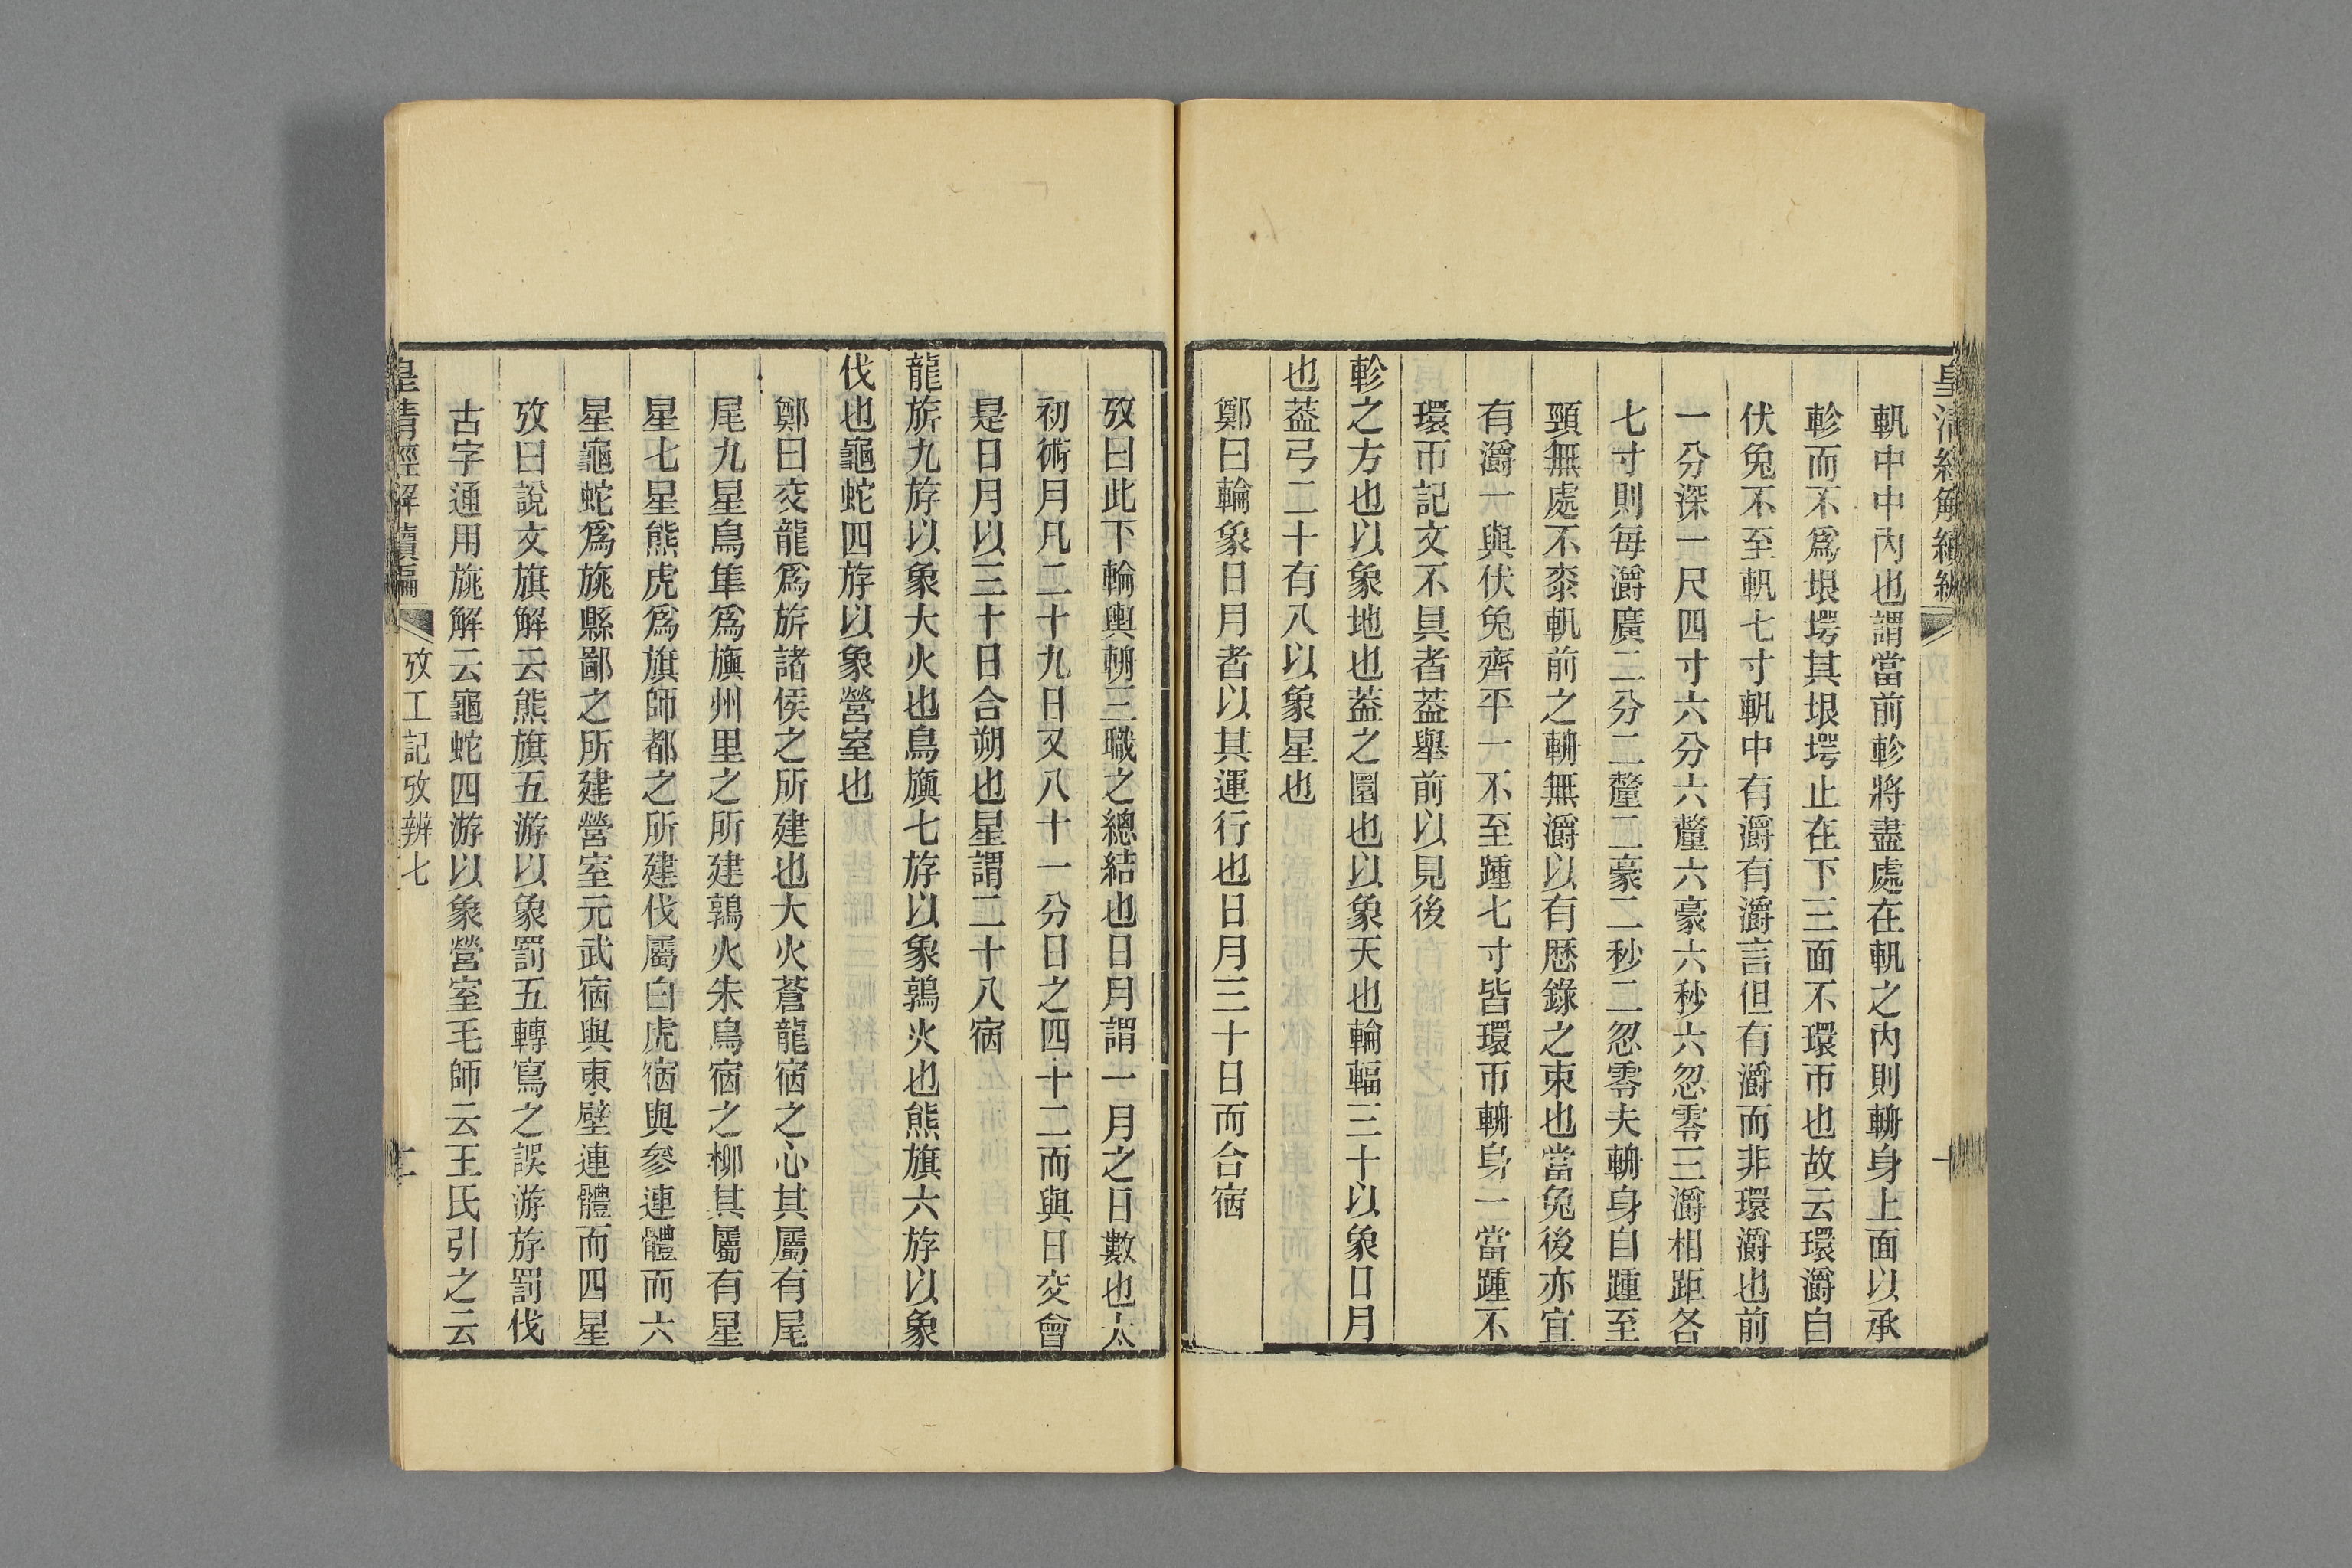 皇清經解續編
軓中中內也謂當前軫將盡處在軓之內則輈身上面以承
軫而不爲垠堮其垠堮止在下三面不環帀也故云環灂自
伏兔不至軓七寸軓中有灂有灂言但有灂而非環灂也前
一分深一尺四寸六分六釐六豪六秒六忽零三灂相距各
七寸則每灂廣二分二釐二豪二秒二忽零夫輈身自踵至
頸無處不桼軓前之輈無灂以有歷錄之束也當兔後亦宜
有灂一與伏兔齊平一不至踵七寸皆環帀輈身一當踵不
環帀記文不具者葢舉前以見後
軫之方也以象地也葢之圜也以象天也輪輻三十以象日月
也葢弓二十有八以象星也
鄭曰輪象日月者以其運行也日月三十日而合宿
攷曰此下輪輿輈三職之總結也日月謂一月之日數也太
初術月凡二十九日又八十一分日之四十二而與日交會
是日月以三十日合朔也星謂二十八宿
龍旂九斿以象大火也鳥旟七斿以象鶉火也熊旗六斿以象
伐也龜蛇四斿以象營室也
鄭曰交龍爲旂諸侯之所建也大火蒼龍宿之心其屬有尾
尾九星鳥隼爲旟州里之所建鶉火朱鳥宿之柳其屬有星
星七星熊虎爲旗師都之所建伐屬白虎宿與參連體而六
星龜蛇爲旐縣鄙之所建營室元武宿與東壁連體而四星
攷曰說文旗解云熊旗五游以象罰五轉寫之誤游斿罰伐
古字通用旐解云龜蛇四游以象營室毛師云王氏引之云
皇清經解續編 攷工記攷辨七 十二